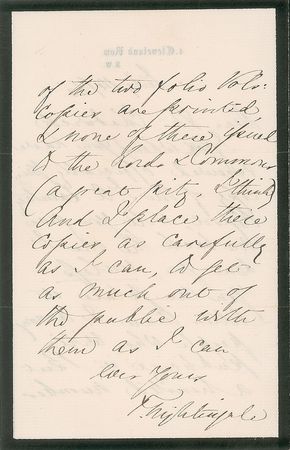 4. Cleveland Row
S.W.
of the two folio Vols:
copies are printed
& none of these issued
to the Lords & Commons
(a great pity, I think)
And I place these
copies, as carefully
as I can, to get
as much out of
the public with
them as I can
ever Yours
F. Nightingale